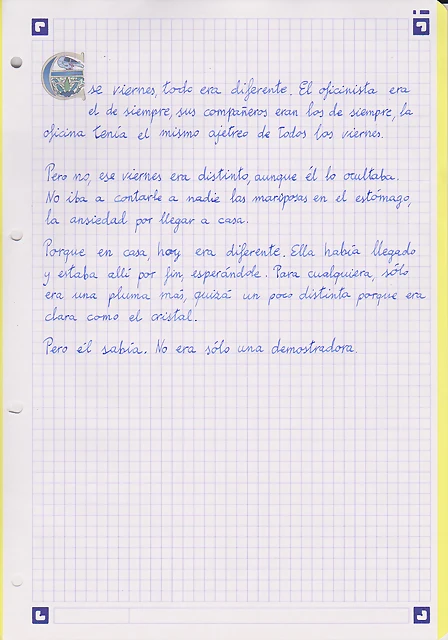 Ese viernes, todo era diferente. El oficinista era
el de siempre, sus compañeros eran los de siempre, la
oficina tenía el mismo ajetreo de todos los viernes.
Pero no, ese viernes era distinto, aunque él lo ocultaba.
No iba a contarle a nadie las mariposas en el estómago,
la ansiedad por llegar a casa.
Porque en casa, hoy era diferente. Ella había llegado
y estaba allí por fin, esperándole. Para cualquiera, sólo
era una pluma más, quizá un poco distinta porque era
clara como el cristal.
Pero él sabía. No era sólo una demostradora.